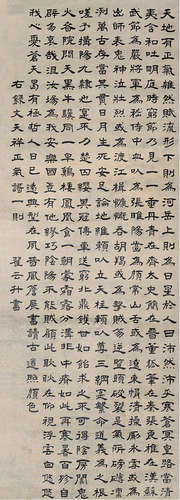 天地有正氣雜然賦流形下則為河嶽上則為日星於人曰浩然沛乎塞蒼冥皇路當清
夷含和吐明庭時窮節乃見一一垂丹青在齊太史簡在晉董狐筆在秦張良椎在漢蘇
武節為嚴將軍頭為嵇侍中血為張睢陽齒為顏常山舌或為遼東帽清操厲冰雪或為
出師表鬼神泣壯烈或為渡江楫慷慨吞胡羯或為擊賊笏逆豎頭破裂是氣所磅礴凜
冽萬古存當其貫日月生死安足論地維賴以立天柱賴以尊三綱實繫命道義為之根
嗟予遘陽九隸也實不力楚囚纓其冠傳車送窮北鼎鑊甘如飴求之不可得陰房闃鬼
火春院閟天黑牛驥同一皂雞棲鳳凰食一朝蒙霧露分作溝中瘠如此再寒暑百沴自
辟易哀哉沮洳場為我安樂國豈有他繆巧陰陽不能賊顧此耿耿在仰視浮雲白悠悠
我心憂蒼天曷有極哲人日已遠典型在夙昔風簷展書讀古道照顏色
右錄文天祥正氣歌一則
翟云升書